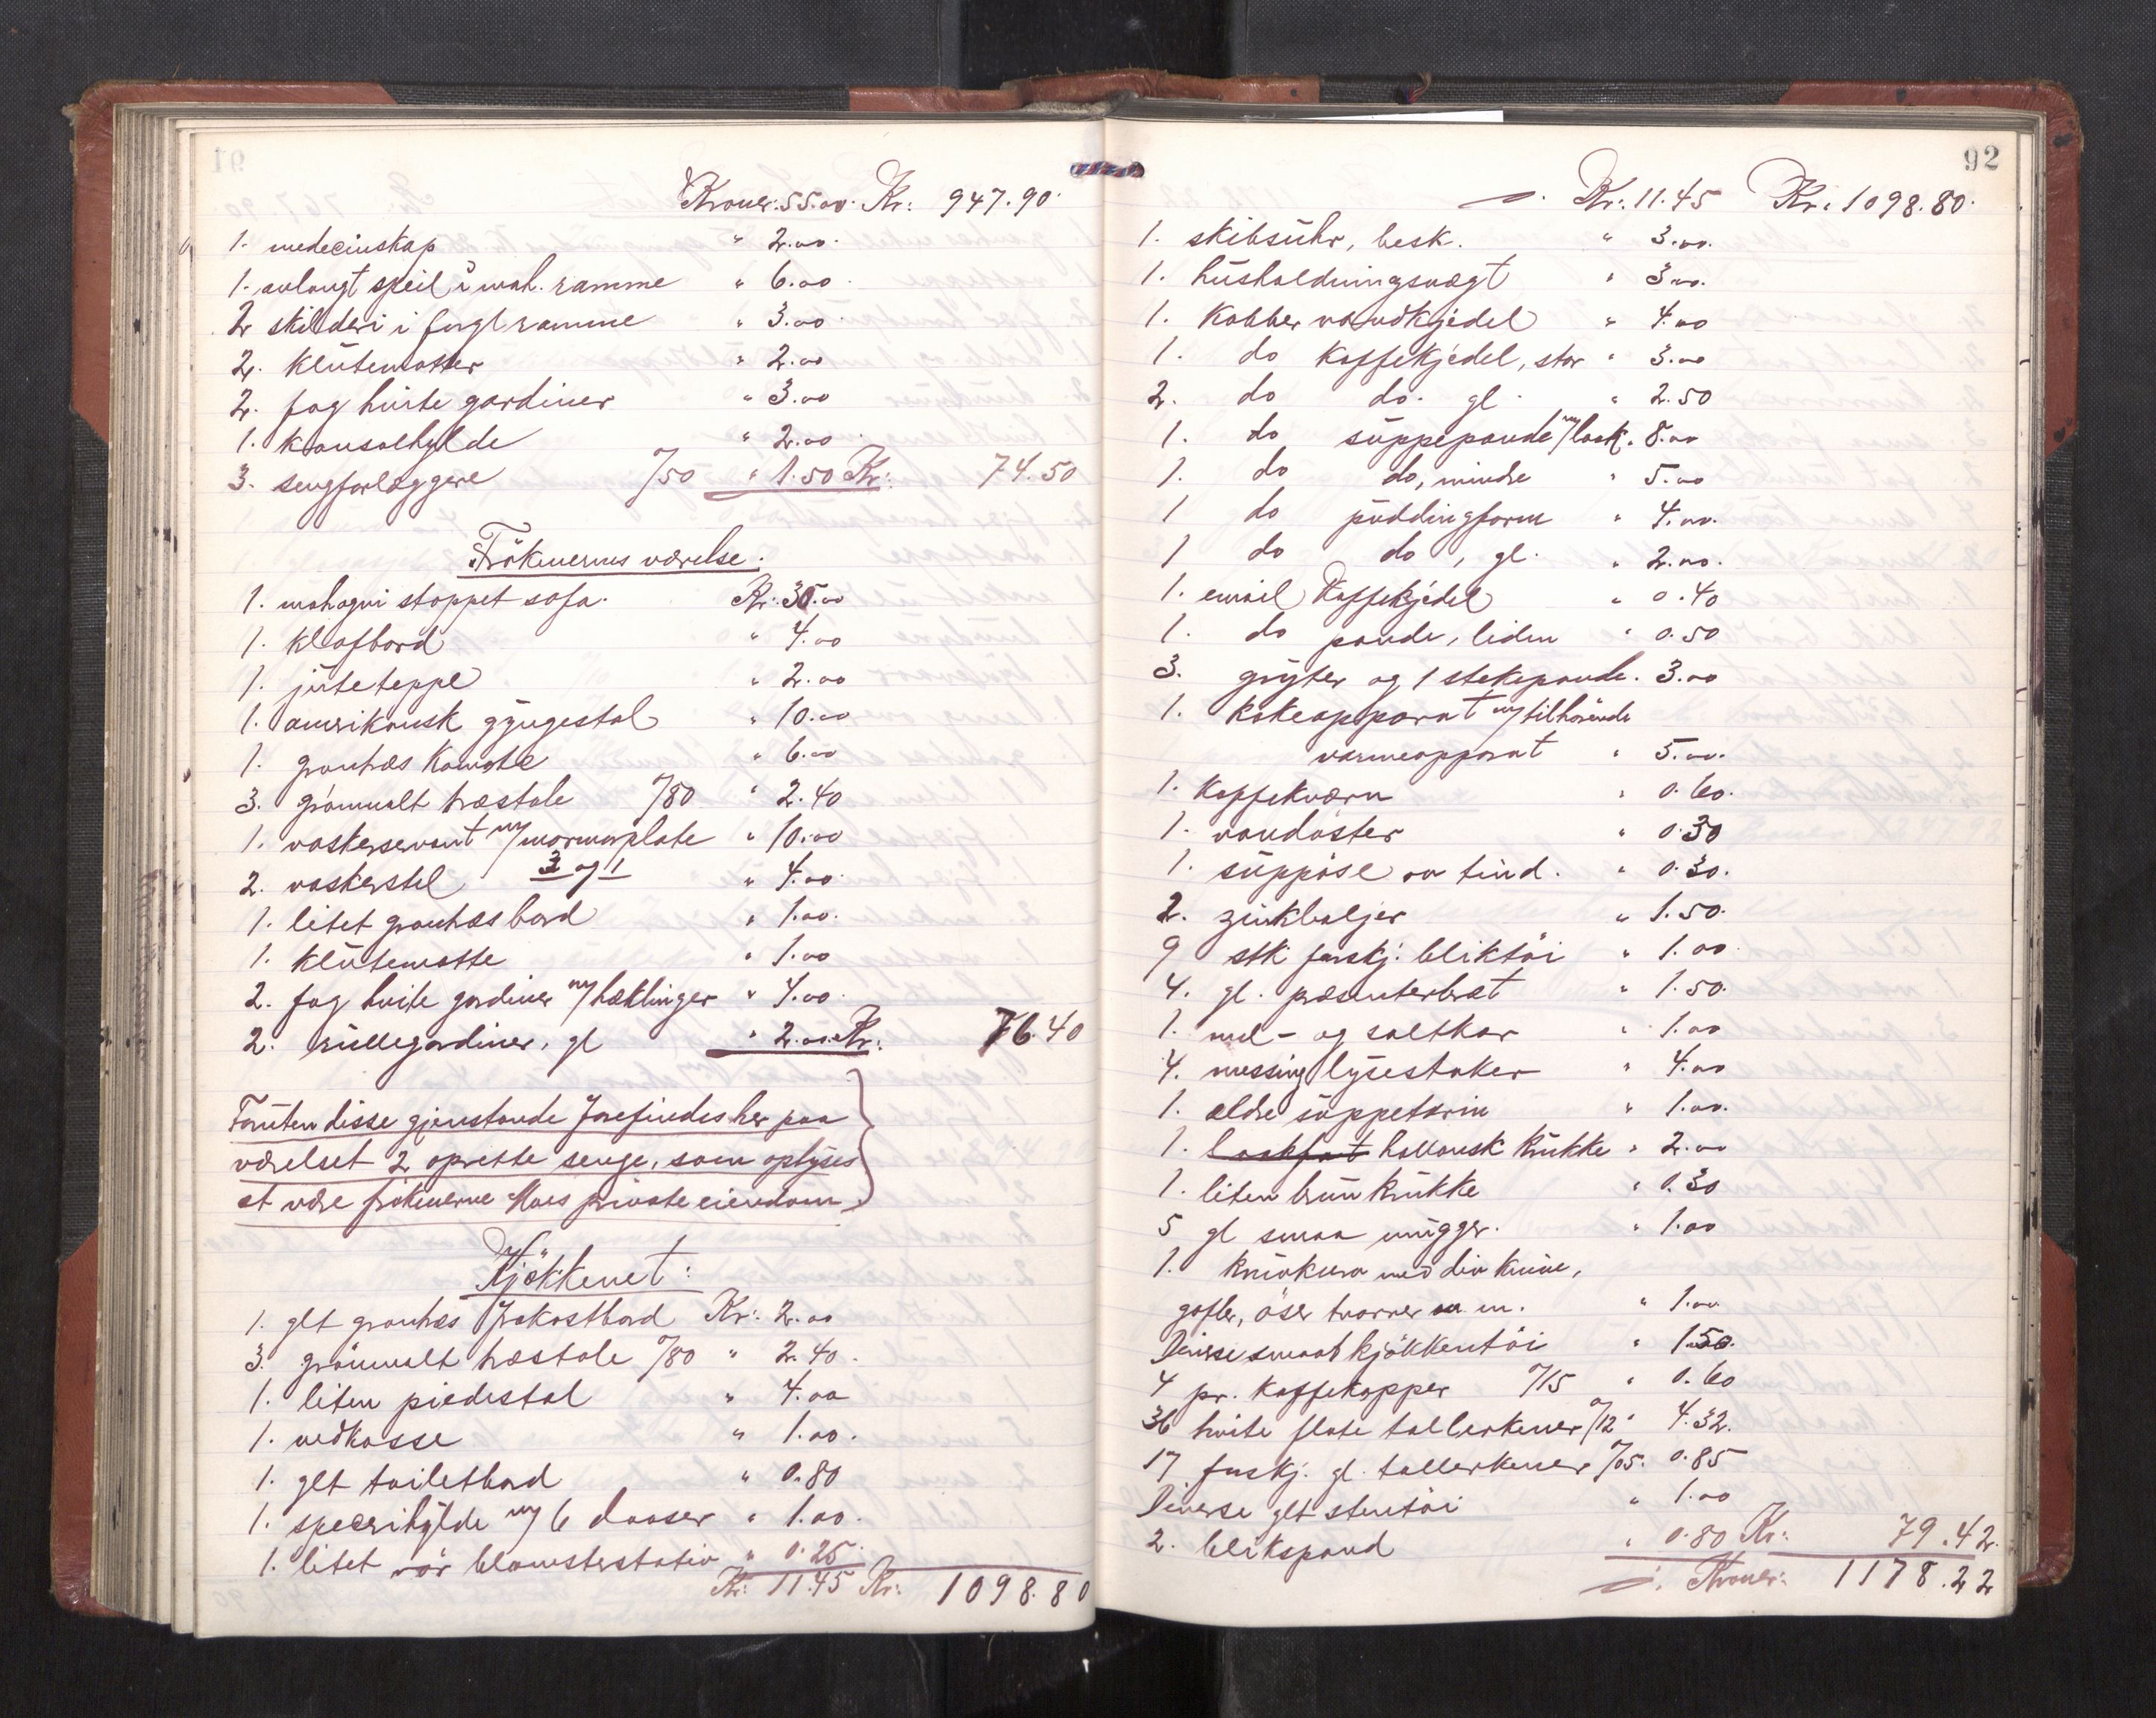 Kroner: 55.00. Kr: 947.90.
1. medecinskap " 2.00.
1. avlangt speil i mah. ramme " 6.00.
2 skilderi i forgt ramme " 3.00.
2. klütematter " 2.00
2. fag hvite gardiner " 3.00
1. konsolhylde " 2.00.
3. sengforlæggere a/50 " 1.50 Kr: 74.50
Frökenernes værelse.
1. mahogni stoppet sofa. Kr: 35.00
1. klafbord " 4.00
1. jüteteppe " 2.00
1. amerikansk gyngestol " 10.00
1. grantræs komode " 6.00
3. grönmalt træstole a/80 " 2.40
1. vaskeservant m/marmorplate " 10.00
2. vaskestel 3 og 1 " 4.00.
1. litet grantræs bord " 1.00.
1. klütematte " 1.00
2. fag hvite gardiner m/hæklinger " 4.00.
2. rüllegardiner, gl " 2.00. Kr: 76.40
Foruten disse gjenstande forefindes her paa
værelset 2 oprette senge, som oplyses
at være frökenerne Moes private eiendom.
Kjökkenet:
1. glt grantræs frokostbord Kr: 2.00
3. grönmalt træstole a/80 " 2.40.
1. liten piedestal " 4.00
1. vedkasse " 1.00.
1. glt toiletbord " 0.80
1. specerihylde m/6 daaser " 1.00.
1. litet rör blomsterstativ " 0.25.
Kr: 11.45 Kr: 1098.80
92
Kr: 11.45 Kr. 1098.80.
1. skibsühr, besk. " 3.00.
1. hüsholdningsvægt " 3.00.
1. Kobber vandkjedel " 4.00
1. do Kaffekjedel, stor " 3.00
2. do do. gl. " 2.50
1. do süppepande m/laak. 8.00
1. do do, mindre " 5.00
1 do püddingform " 4.00.
1 do do, gl. " 2.00.
1. email Kaffekjedel " 0.40
1. do pande, liden " 0.50
3. gryter og 1 stekepande. 3.00
1. Kokeapparat m/tilhörende
varmeapparat " 5.00.
1. Kaffekværn " 0.60.
1. vandöster " 0.30
1. süppöse av tind. " 0.30.
2. zinkbaljer " 1.50.
9 stk forskj. bliktöi " 1.00.
4. gl. præsenterbræt " 1.50.
1. mel- og saltkar " 1.00
4. messing lysestaker " 4.00
1. ældre süppeterin " 1.00.
1. hollansk krükke " 2.00
1. liten brün krükke " 0.30
5 gl smaa mügger. " 1.00
1. knivkurv med div knive,
gafler, öser tvarrer m. m. " 1.00
Diverse smaat kjökkentöi " 1.50.
4 pr. Kaffekopper a/15 " 0.60
36 hvite flate tallerkener a/12 " 4.32.
17 forskj. gl. tallerkener a/05. 0.85
Diverse glt stentöi " 1.00
2. blikspand " 0.80 Kr: 79.42.
Kroner: 1178.22